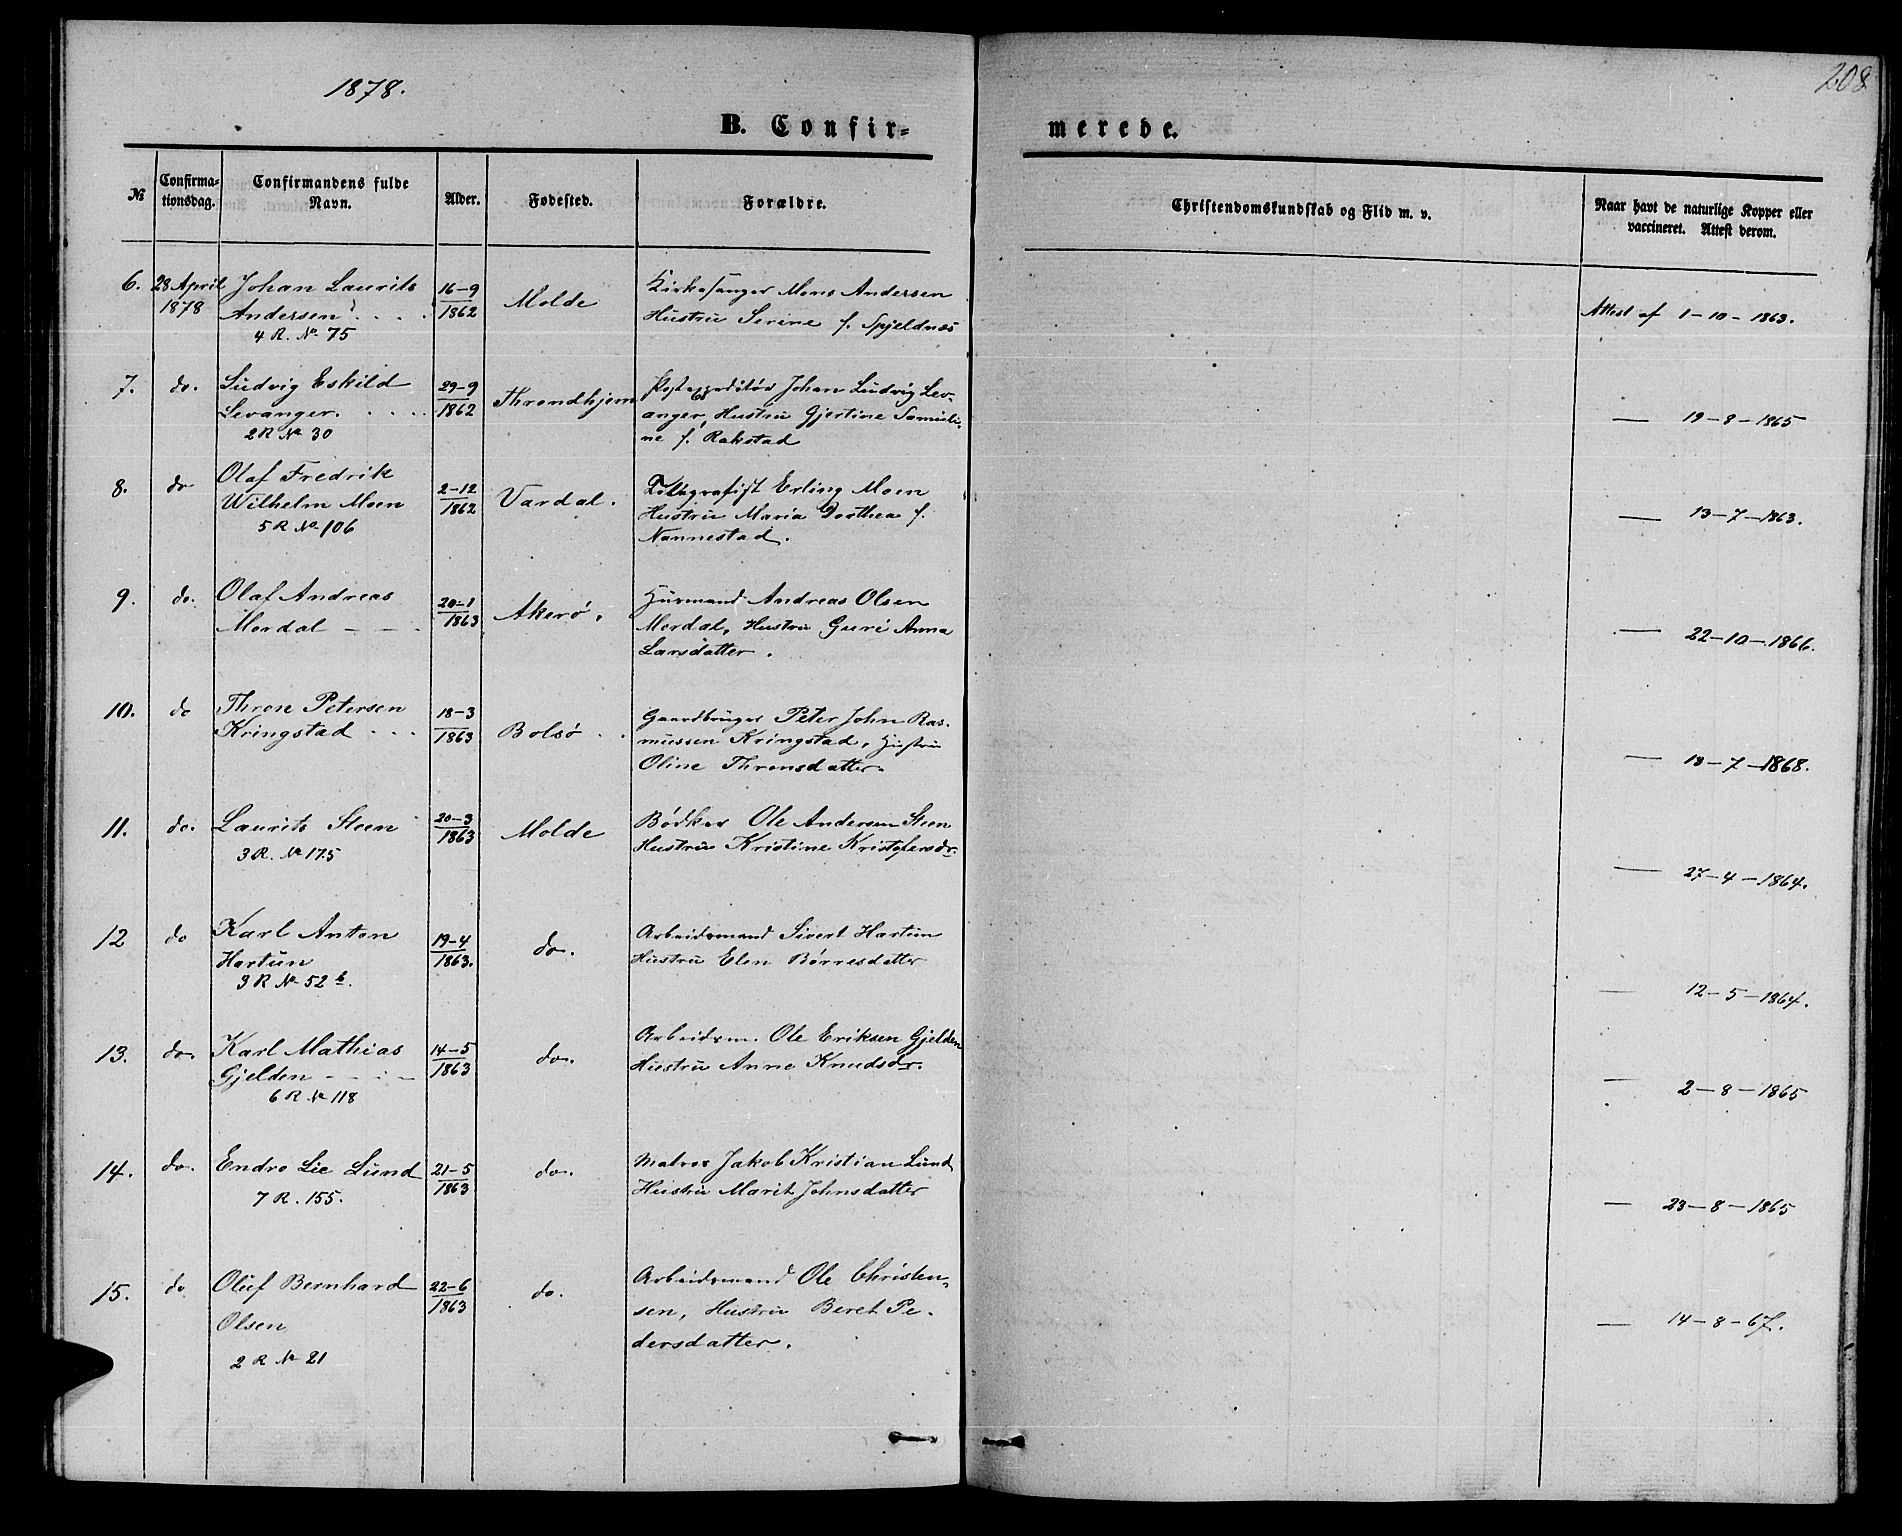 1878.
208
B. Confir=
merede.
№
Confirma-
tionsdag.
Confirmandens fulde
Navn.
Alder.
Fødested.
Forældre.
Christendomskundskab og Flid m. v.
Naar havt de naturlige Kopper eller
vaccineret. Attest derom.
6.
28 April
1878
Johan Laurits
Andersen . . . .
4 R. No 75
16-9
1862
Molde
Kirkesanger Mons Andersen
Hustru Serine f. Spjeldnæs
Attest af 1-10-1863.
7.
do.
Ludvig Eskild
Levanger. . . . .
2 R No 30
29-9
1862
Throndhjem
Postexpeditør Johan Ludvig Lev-
anger, Hustru Gjertine Samueli-
ne f. Rakstad
— 19-8-1865
8.
do
Olaf Fredrik
Wilhelm Moen
5 R No 106
2-12
1862
Vardal.
Telegrafist Erling Moen
Hustru Maria Dorthea f.
Nannestad.
— 13-7-1863.
9.
do.
Olaf Andreas
Mordal - - -
20-1
1863
Akerø.
Husmand Andreas Olsen
Mordal, Hustru Guri Anna
Larsdatter.
— 22-10-1866.
10.
do
Thron Petersen
Kringstad . . .
18-3
1863
Bolsø . .
Gaardbruger Peter John Ras-
mussen Kringstad, Hustru
Oline Thronsdatter.
— 13-7-1868.
11.
do.
Laurits Steen
3 R. No 175
20-3
1863
Molde
Bødker Ole Andersen Steen
Hustru Kristine Kristofersdr.
— 27-4-1864.
12
do
Karl Anton
Hartun
3 R No 52 b.
19-4
1863.
do.
Arbeidsmand Sivert Hartun
Hustru Elen Børresdatter
— 12-5-1864.
13.
do.
Karl Mathias
Gjelden - - - -
6 R No 118
14-5
1863
do.
Arbeidsm. Ole Eriksen Gjelden
Hustru Anne Knudsdr.
— 2-8-1865
14.
do.
Endre Lie Lund
7 R. 155.
21-5
1863
do.
Matros Jakob Kristian Lund
Hustru Marit Johnsdatter
— 23-8-1865
15.
do
Oluf Bernhard
Olsen
2 R No 21
22-6
1863
do.
Arbeidsmand Ole Christen-
sen, Hustru Beret Pe-
dersdatter.
— 14-8-67.